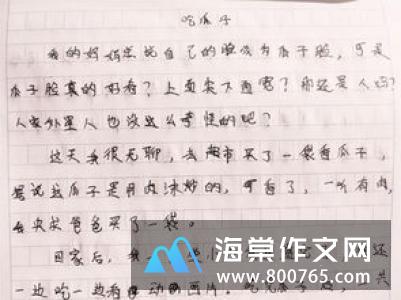 吃瓜子
我的妈妈总说自己的脸成为瓜子脸，可是
瓜子脸真的好看？上面尖下面宽？那还是人吗？
人家外星人也没这么奇怪的吧？
这天我很无聊，去超市买了一袋香瓜子，
是说这瓜子是用肉沫炒的，可香了，一听有肉，
去央求爸爸买了一袋。
回家后，我一
一边吃一边看动画片。
海棠作文网
www.800765.com